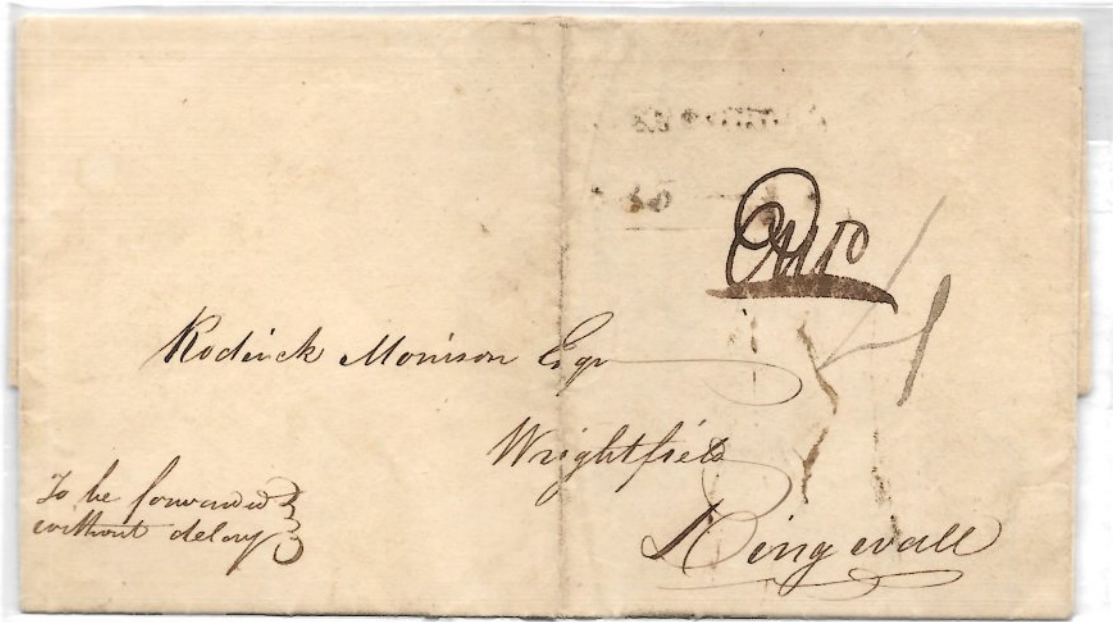 4
Roderick Morrison Esqr
Wrightfield
Dingwall
To be forwarded
without delay